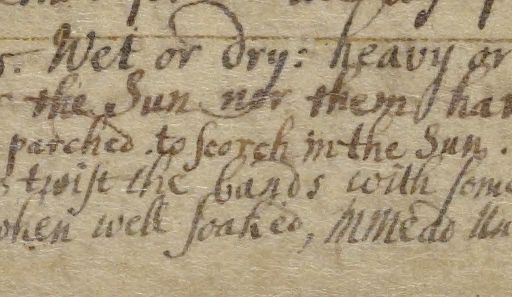 Wet or dry: heavy or
the Sun nor them har
parched. to scorch in the Sun.
twist the bands with some
when well soaked,